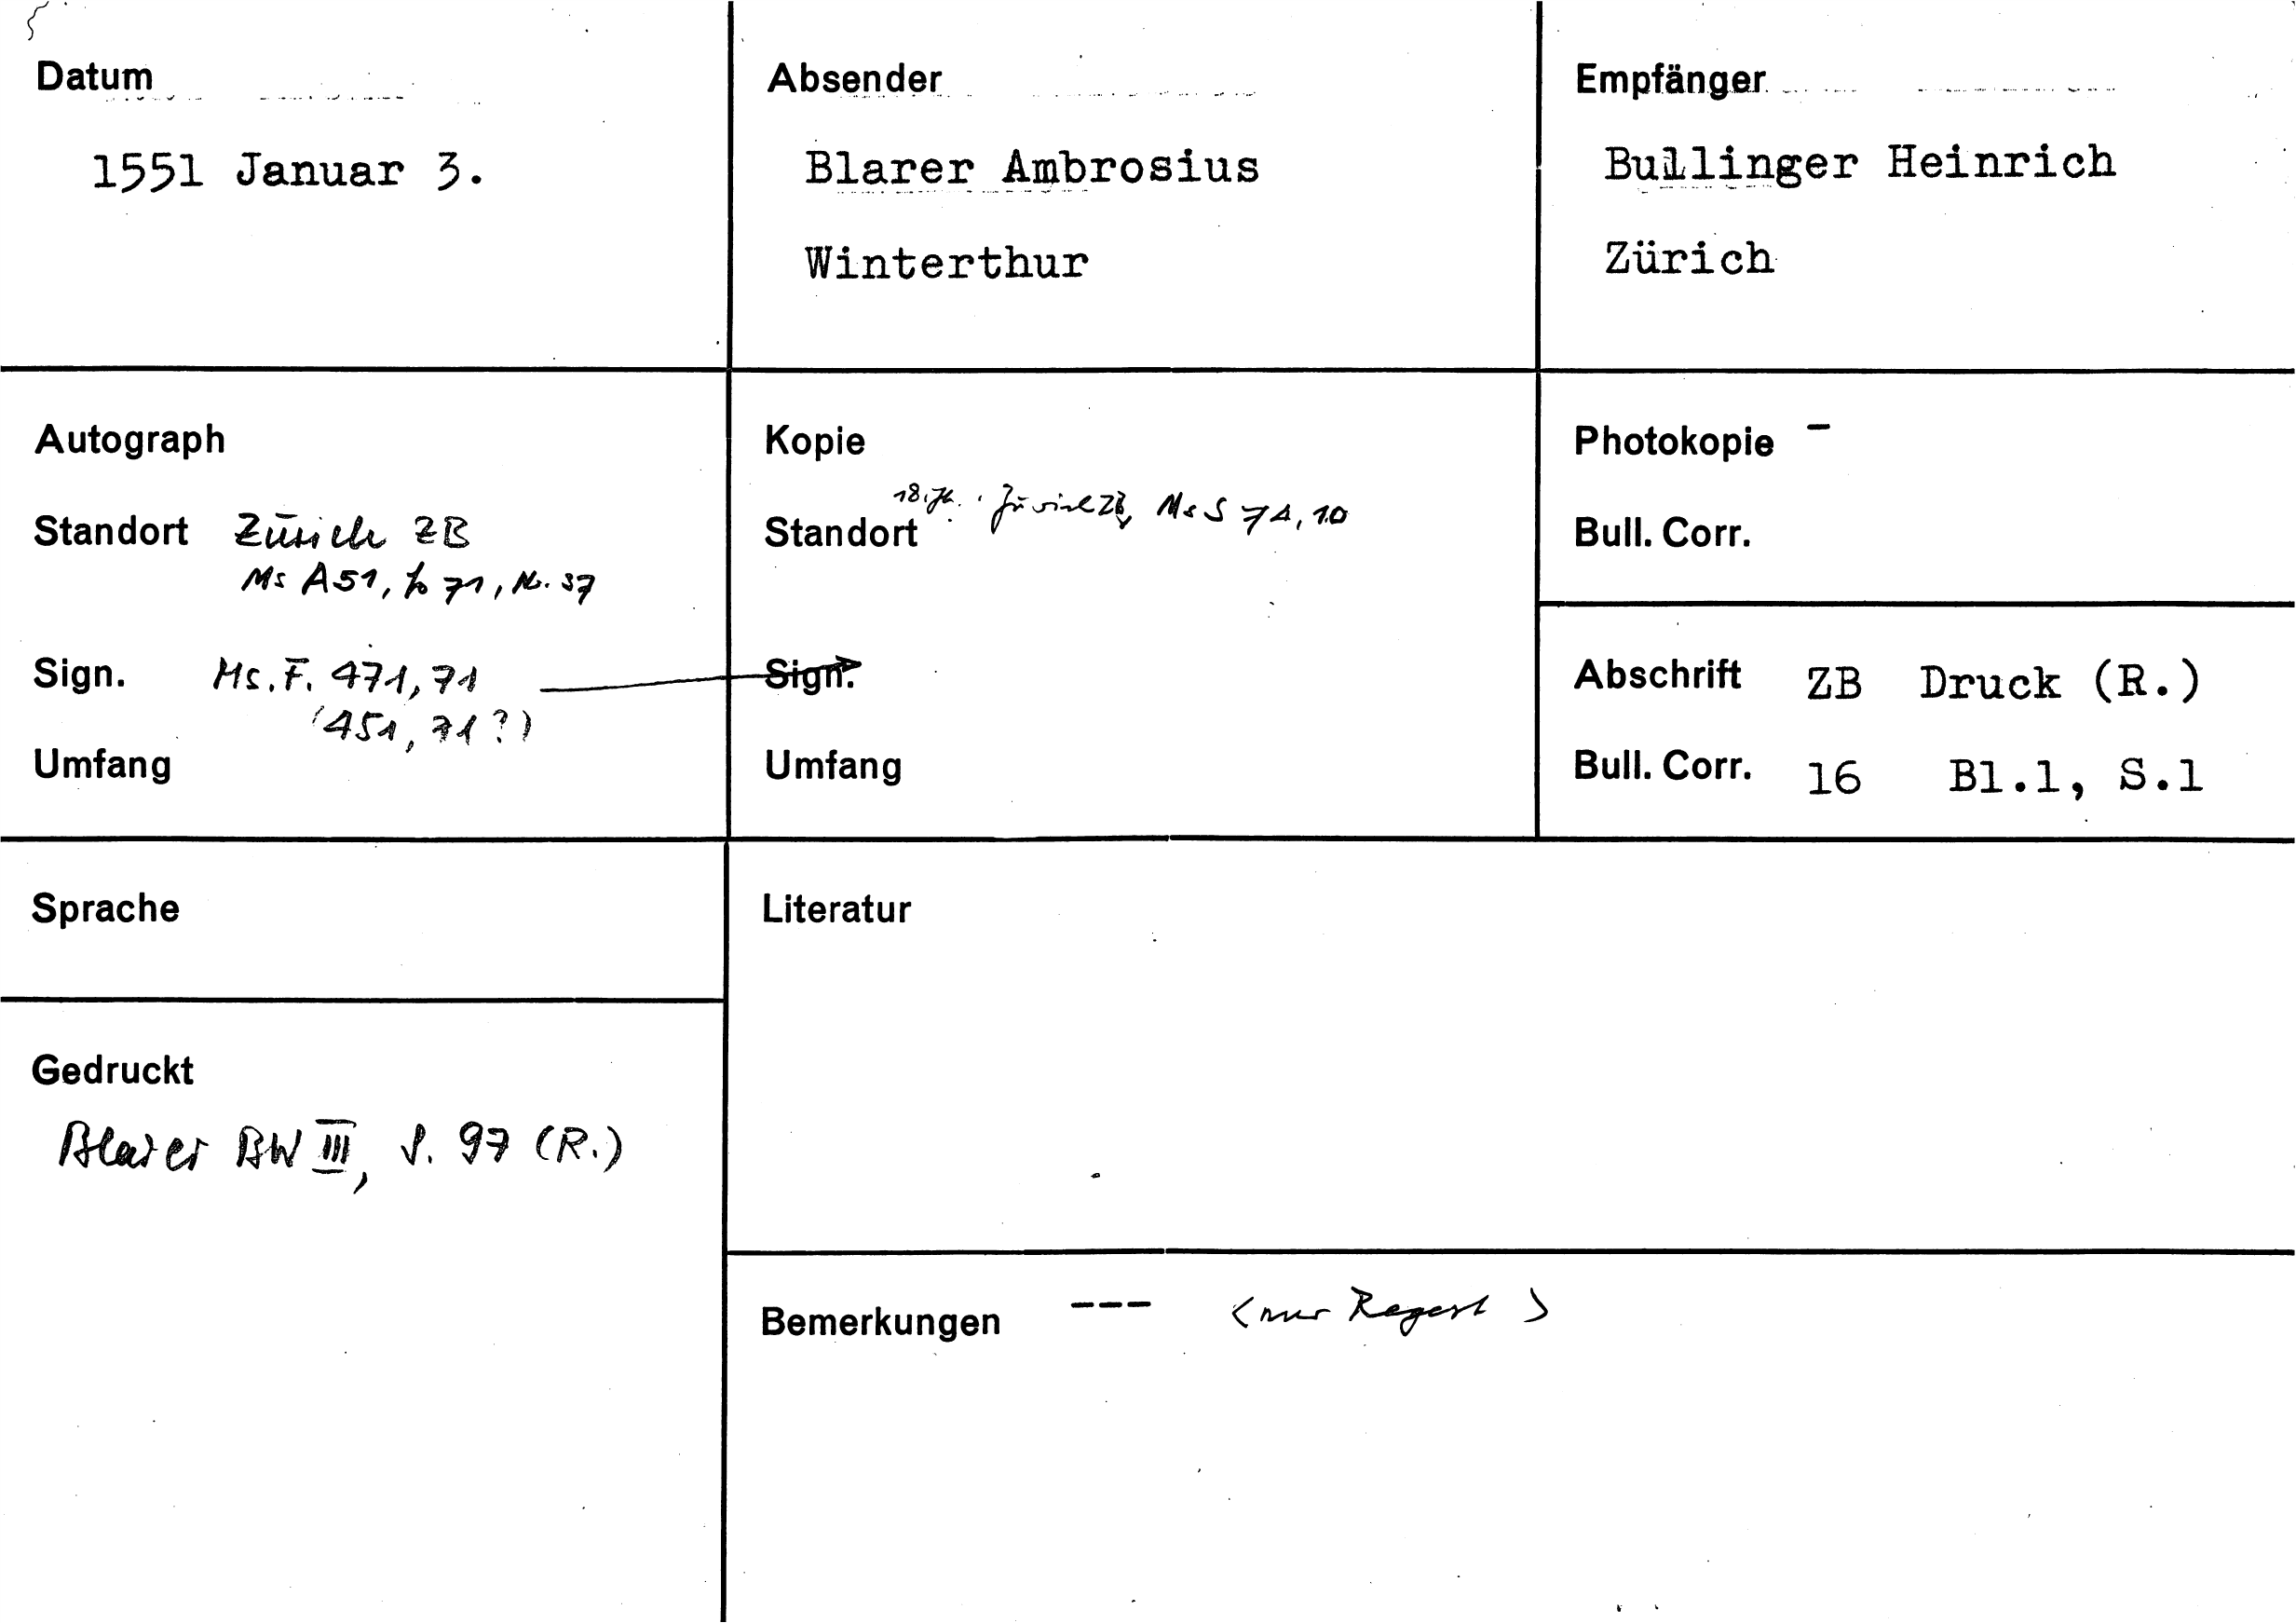 Datum
1551 Januar 3.
Absender
Blarer Ambrosius
Winterthur
Empfänger
Bullinger Heinrich
Zürich
Autograph
Standort Zürich ZB
Ms A51, fo 71, Nr. 37
Sign. Ms. F. 471, 71
(451, 71?)
Umfang
Kopie
18. Jh. Zürich ZB, Ms S 74, 10
Standort
Sign.
Umfang
Photokopie -
Bull. Corr.
Abschrift ZB Druck (R.)
Bull. Corr. 16 Bl.1, S.1
Sprache
Gedruckt
Blarer BW III, S. 97 (R.)
Literatur
Bemerkungen --- <nur Regest>